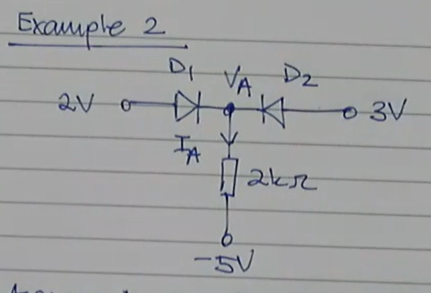 Example 2
D1 VA D2
2V 3V
IA
2kΩ
-5V